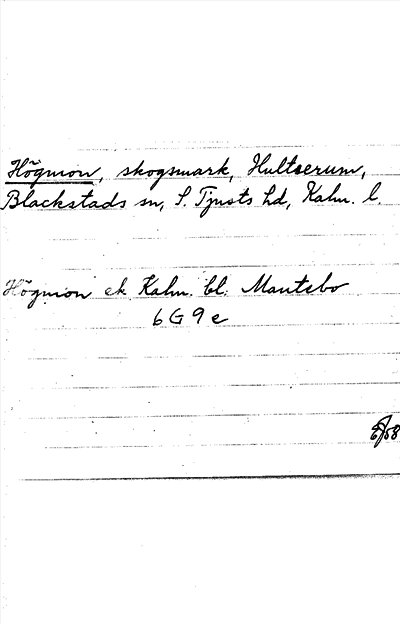 Högmon, skogsmark, Hultserum,
Blackstads sn, S. Tjusts hd, Kalm. l.
Högmon ek Kalm. bl. Mantebo
6G9e